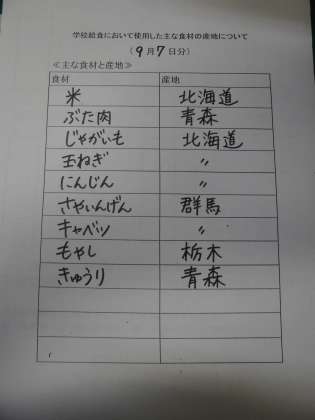 学校給食において使用した主な食材の産地について
(9月7日分)
≪主な食材と産地≫
食材 産地
米 北海道
ぶた肉 青森
じゃがいも 北海道
玉ねぎ 〃
にんじん 〃
さやいんげん 群馬
キャベツ 〃
もやし 栃木
きゅうり 青森